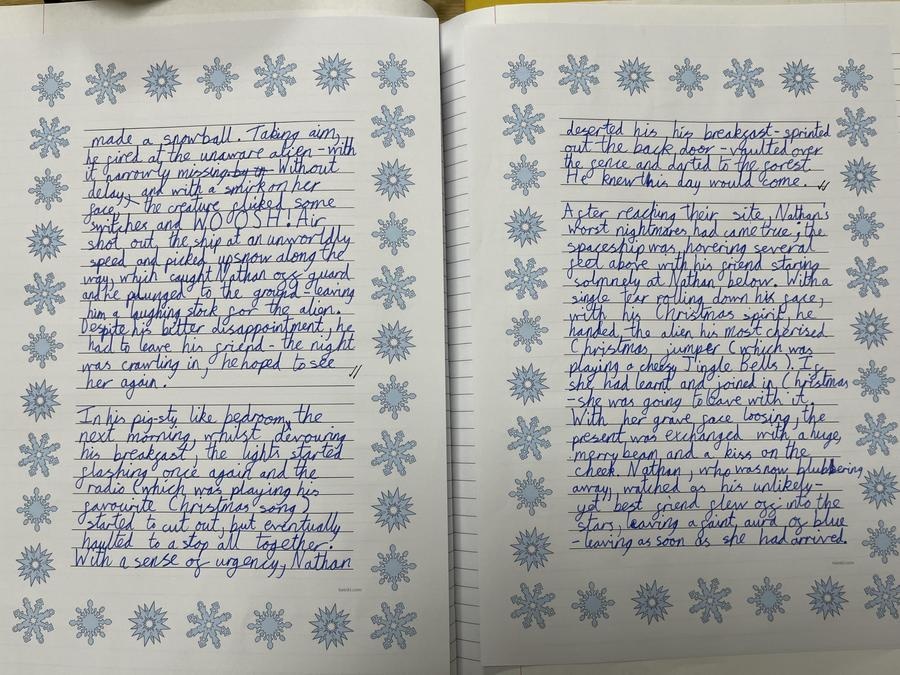 made a snowball. Taking aim,
he fired at the unaware alien - with
it narrowly missing by in Without
delay, and with a smirk on her
face, the creature flicked some
switches and WOOSH! Air
shot out, the ship at an unworldly
speed and picked upsnow along the
way, which caught Nathan off guard
and he plunged to the ground - leaving
him a laughing stock for the alien.
Despite his better disappointment, he
had to leave his friend - the night
was crawling in, he hoped to see
her again.
In his pig-sty like bedroom, the
next morning, whilst devouring
his breakfast, the lights started
flashing once again and the
radio (which was playing his
favourite Christmas song)
started to cut out, but eventually
haulted to a stop all together.
With a sense of urgency, Nathan
twinkl.com
deserted his, his breakfast - sprinted
out the back door - vaulted over
the fence and darted to the forest
He knew this day would come.
After reaching their site, Nathan's
worst nightmares had came true; the
spaceship was hovering several
feet above with his friend staring
solmnely at Nathan below. With a
single tear rolling down his face,
with his Christmas spirit, he
handed the alien his most cherised
Christmas jumper (which was
playing a cheesy Jingle Bells). If
she had learnt and joined in Christmas
- she was going to leave with it.
With her grave face loosing, the
present was exchanged with a huge,
merry beam and a kiss on the
cheek. Nathan, who was now blubbering
away, watched as his unlikely -
yet best friend flew off into the
stars, leaving a faint aura of blue
- leaving as soon as she had arrived.
twinkl.com